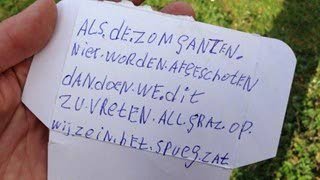 ALS.dE.ZOMGANZEN.
NIET.WORDEN.AFGESCHOTEN
dANdOEN.WE.dIT
ZU.VRETEN.ALL.GRAZ.OP.
WIJ.ZEIN.hET.SPUEGZAT